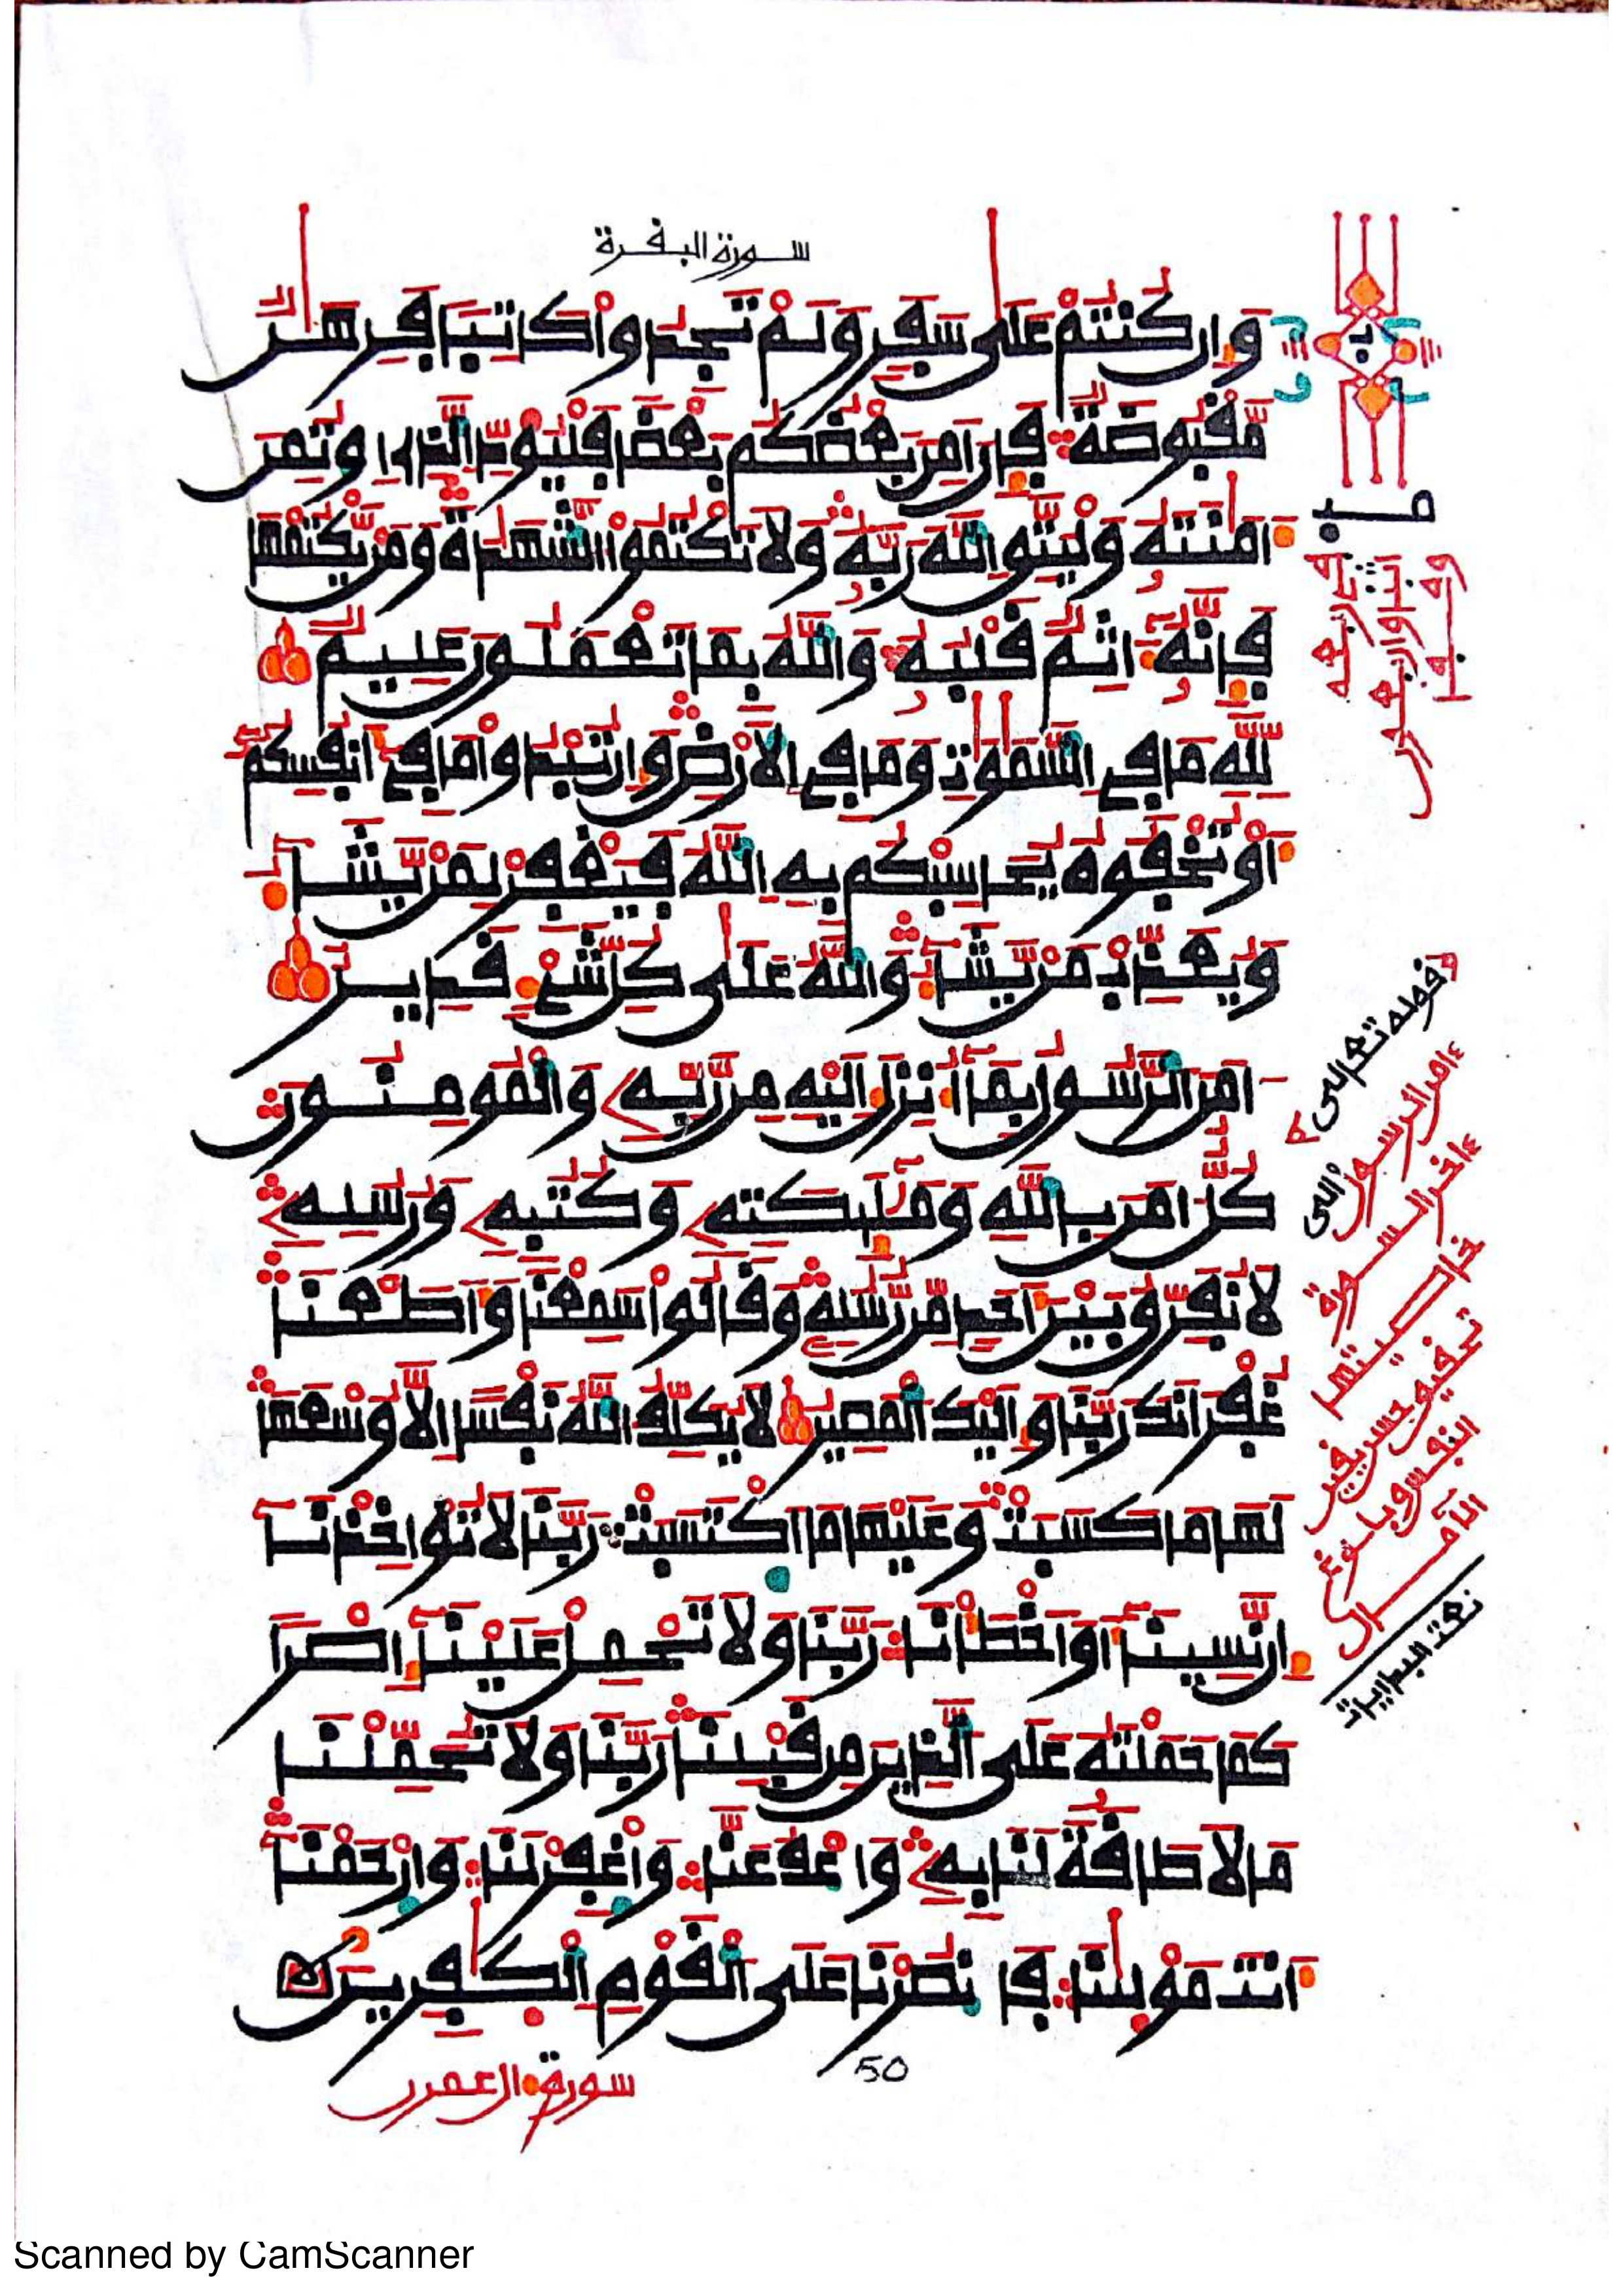 سورة البقرة
وإن كنتم على سفر ولم تجدوا كاتبا فرهن
مقبوضة فإن أمن بعضكم بعضا فليود الذي اوتمن
أمنته وليتق الله ربه ولا تكتموا الشهدة ومن يكتمها
فإنه ءاثم قلبه والله بما تعملون عليم
لله ما في السموت وما في الأرض وإن تبدوا ما في أنفسكم
أو تخفوه يحاسبكم به الله فيغفر لمن يشاء
ويعذب من يشاء والله على كل شيء قدير
ءامن الرسول بما أنزل إليه من ربه والمومنون
كل ءامن بالله وملئكته وكتبه ورسله
لا نفرق بين أحد من رسله وقالوا سمعنا وأطعنا
غفرانك ربنا وإليك المصير لا يكلف الله نفسا إلا وسعها
لها ما كسبت وعليها ما اكتسبت ربنا لا تواخذنا
إن نسينا أو أخطأنا ربنا ولا تحمل علينا إصرا
كما حملته على الذين من قبلنا ربنا ولا تحملنا
ما لا طاقة لنا به واعف عنا واغفر لنا وارحمنا
أنت مولينا فانصرنا على القوم الكفرين
50
سورة ءال عمرن
قوله تعالى
ءامن الرسول إلى
ءاخر السورة
خاصيتها
Scanned by CamScanner